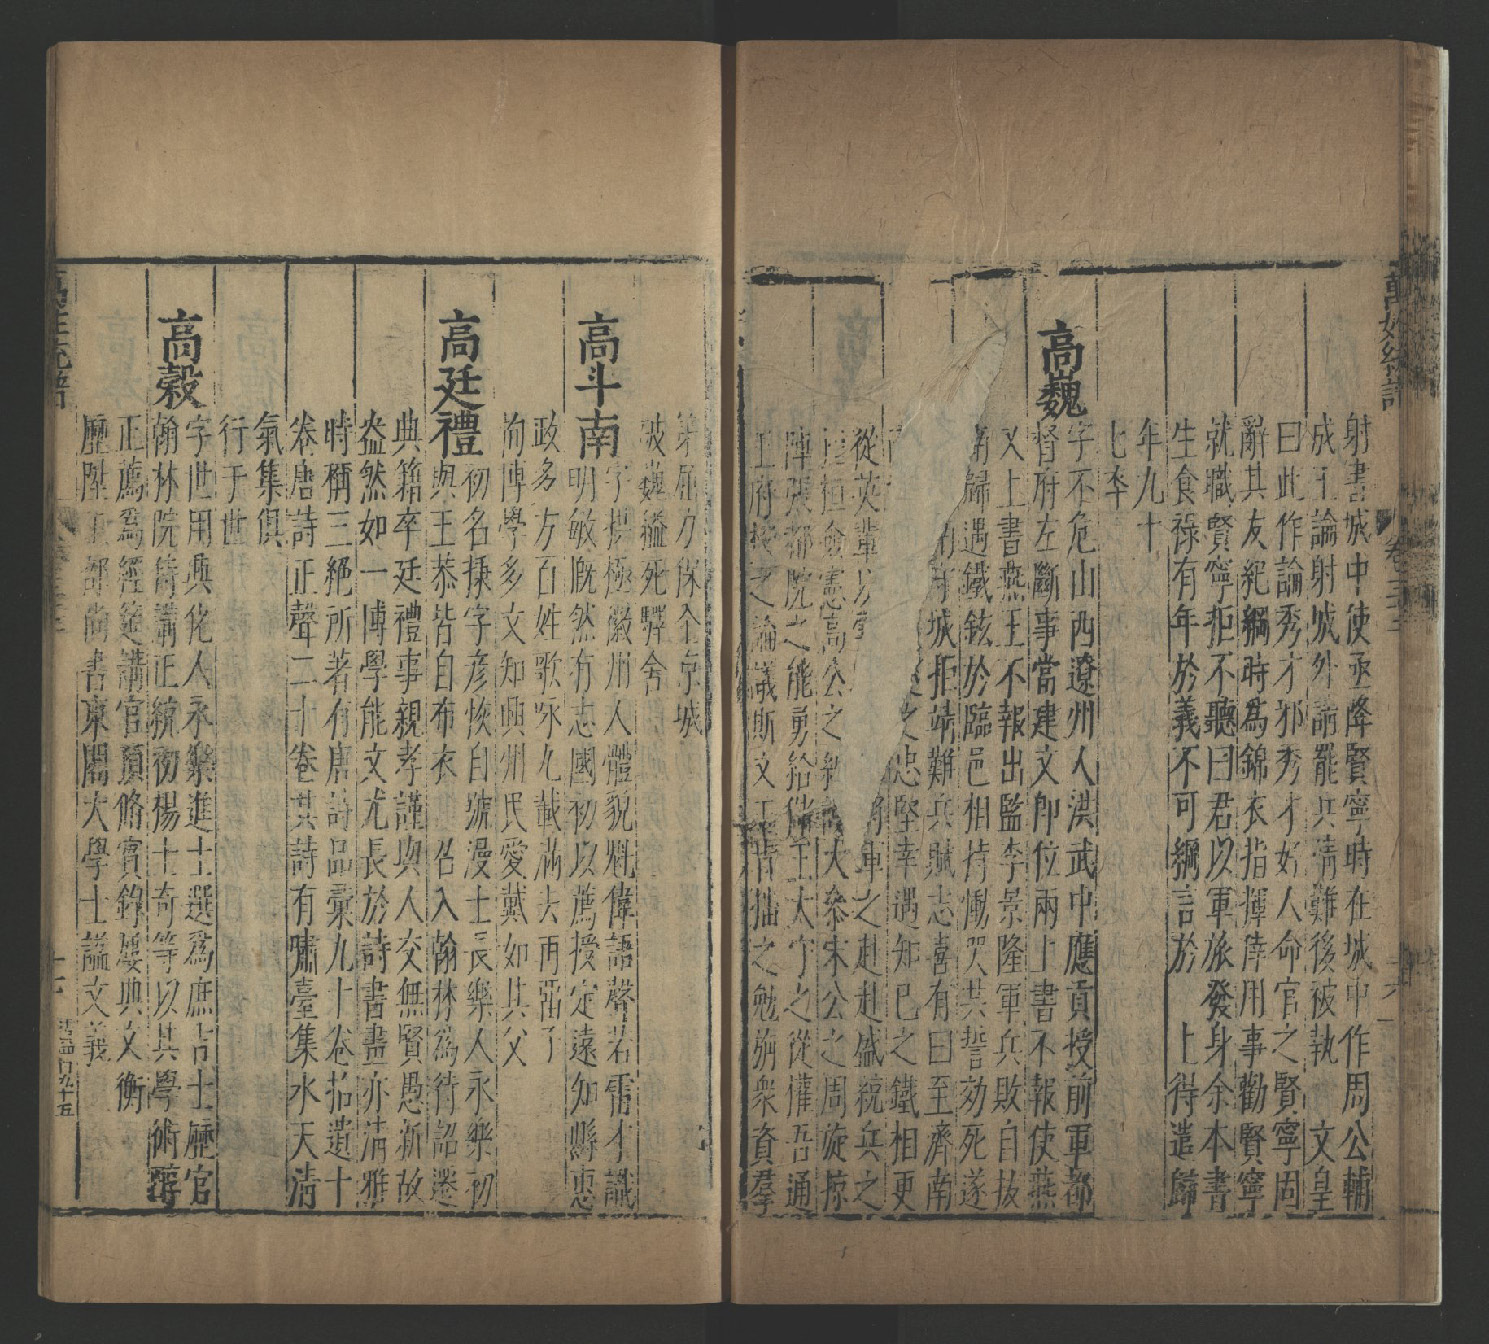 萬姓統譜
卷三十三
射書城中使亟降賢寧時在城中作周公輔
成王論射城外請罷兵靖難後被執 文皇
曰此作論秀才邪秀才好人命官之賢寧固
辭其友紀綱時為錦衣指揮倖用事勸賢寧
就職賢寧拒不聽曰君以軍旅發身余本書
生食祿有年於義不可綱言於 上得遣歸
年九十
七卒
高巍
字不危山西遼州人洪武中應貢授前軍都
督府左斷事當建文即位兩上書不報使燕
又上書燕王不報出監李景隆軍兵敗自拔
南歸遇鐵鉉於臨邑相持慟哭共誓効死遂
城拒靖難兵賦志喜有曰至濟南
之忠堅幸遇知己之鐵相更
從英輩以 車之赴赴盛統兵之
桓僉憲高公之 大叅宋公之周旋掠
陣張都院之能勇給 王太守之從懽吾通
王府 之論議斯文 之勉旃衆資羣
策屈力保全京城
破巍縊死驛舍
高斗南
字拱極徽州人體貌魁偉語聲若雷才識
明敏慨然有志國初以薦授定遠知縣惠
政多方百姓歌咏九載滿去再
陶博學多文知 州民愛戴如其父
高廷禮
初名棅字彥恢自號漫士長樂人永樂初
與王恭皆自布衣 召入翰林為待詔遷
典籍卒廷禮事親孝謹與人交無賢愚新故
盎然如一博學能文尤長於詩書畫亦清雅
時稱三絕所著有唐詩品彙九十卷拾遺十
卷唐詩正聲二十卷其詩有嘯臺集水天清
氣集俱
行于世
高穀
字世用興化人永樂進士選為庶吉士歷官
翰林院侍講正統初楊士奇等以其學術醇
正薦為經筵講官預脩實錄屢典文衡
歷陞工部尚書東閣大學士謚文義
萬姓統譜